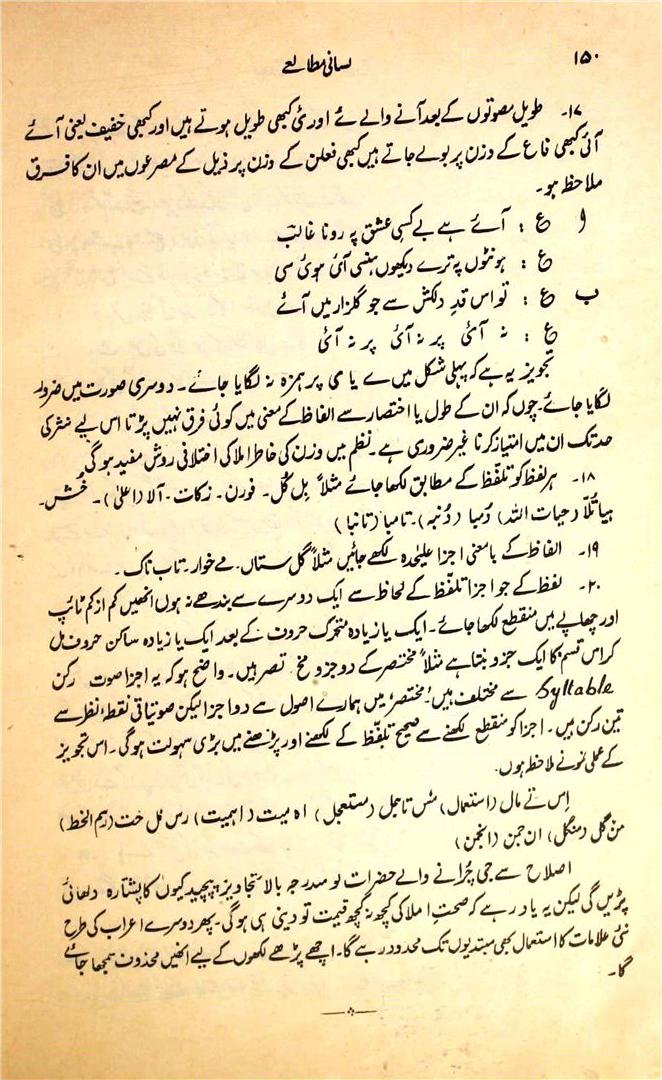 ۱۵۰
لسانی مطالعے
۱۷۔ طویل مصوتوں کے بعد آنے والے ئے اور ئ کبھی طویل ہوتے ہیں اور کبھی خفیف یعنی آئے
آئی کبھی فاع کے وزن پر بولے جاتے ہیں کبھی فعلن کے وزن پر ذیل کے مصرعوں میں ان کا فرق
ملاحظہ ہو۔
ا ع : آئے ہے بے کسیِ عشق پہ رونا غالبؔ
ع : ہونٹوں پہ ترے دیکھوں ہنسی آئی ہوئی سی
ب ع : تو اس قدِ دلکش سے جو گلزار میں آئے
ع : نہ آئی پر نہ آئی پر نہ آئی
تجویز یہ ہے کہ پہلی شکل میں ے یا ی پر ہمزہ نہ لگایا جائے۔ دوسری صورت میں ضرور
لگایا جائے۔ چوں کہ ان کے طول یا اختصار سے الفاظ کے معنی میں کوئی فرق نہیں پڑتا اس لیے نثر کی
حد تک ان میں امتیاز کرنا غیر ضروری ہے۔ نظم میں وزن کی خاطر املا کی اختلافی روش مفید ہوگی
۱۸۔ ہر لفظ کو تلفظ کے مطابق لکھا جائے مثلاً بل کُل۔ فورن۔ زکات۔ آلا (اعلیٰ)۔ خُش۔
ہیاتُلّا (حیات اللہ) دُمبا (دُنبہ)۔ تامبا (تانبا)
۱۹۔ الفاظ کے بامعنی اجزا علیحدہ لکھے جائیں مثلاً گل ستاں۔ مے خوار۔ تاب ناک۔
۲۰۔ لفظ کے جو اجزا تلفظ کے لحاظ سے ایک دوسرے سے بندھے نہ ہوں انھیں کم از کم ٹائپ
اور چھاپے میں منقطع لکھا جائے۔ ایک یا زیادہ متحرک حروف کے بعد ایک یا زیادہ ساکن حروف مل
کر اس قسم کا ایک جزو بنتا ہے مثلاً مختصر کے دو جزو مخ تصر ہیں۔ واضح ہو کہ یہ اجزا صوت رکن
Syllable سے مختلف ہیں 'مختصر' میں ہمارے اصول سے دو اجزا لیکن صوتیاتی نقطۂ نظر سے
تین رکن ہیں۔ اجزا کو منقطع لکھنے سے صحیح تلفظ کے لکھنے اور پڑھنے میں بڑی سہولت ہوگی۔ اس تجویز
کے عملی نمونے ملاحظہ ہوں۔
اِس تے مال (استعمال) مُس تاجل (مستعجل) اہ میت (اہمیت) رس مل خت (رسم الخط)
من گل (منگل) ان جمن (انجمن)
اصلاح سے جی چرانے والے حضرات کو مندرجہ بالا تجاویز پیچیدگیوں کا پشتارہ دکھائی
پڑیں گی لیکن یہ یاد رہے کہ صحتِ املا کی کچھ نہ کچھ قیمت تو دینی ہی ہوگی۔ پھر دوسرے اعراب کی طرح
نئی علامات کا استعمال بھی مبتدیوں تک محدود رہے گا۔ اچھے پڑھے لکھوں کے لیے انھیں محذوف سمجھا جائے
گا۔